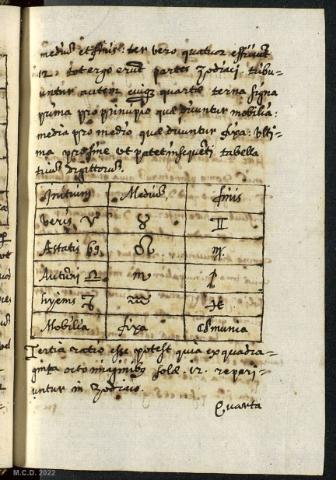 medius et finis: ter vero quatuor efficiunt
12. tot ergo erunt partes Zodiaci tribu-
untur autem cuiq; quartæ terna signa
prima pro principio quæ dicuntur mobilia:
media pro medio quæ dicuntur fixa: ulti-
ma pro fine ut patet in sequenti tabella
Initium Medius finis
Veris ♈ ♉ ♊
Æstatis ♋ ♌ ♍
♎ ♏ ♐
hyemis ♑ ♒ ♓
Mobilia fixa Communia
Tertia ratio esse potest quia ex quadra-
ginta octo imaginibus solæ 12. reperi-
untur in Zodiaco.
Quarta
M.C.D. 2022